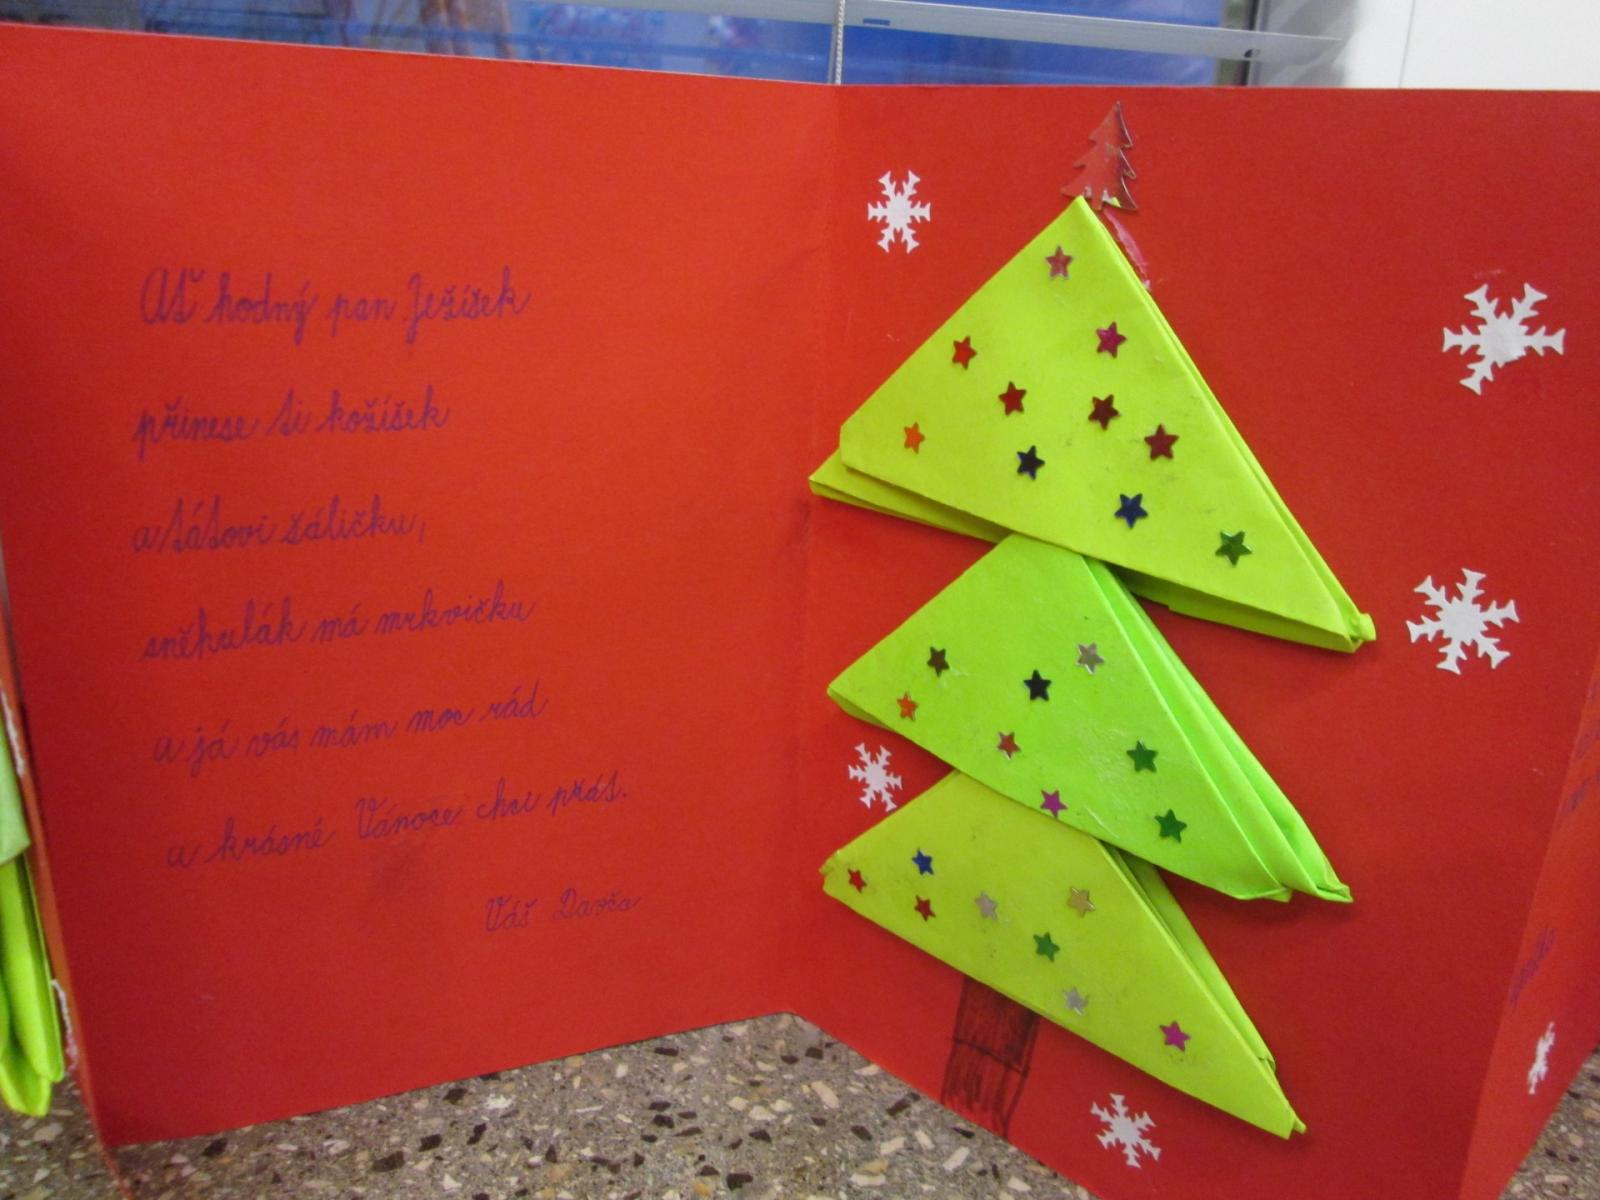 Ať hodný pan Ježíšek
přinese ti kožíšek
a tátovi šáličku,
sněhulák má mrkvičku
a já vás mám moc rád
a krásné Vánoce chci přát.
Váš Davča